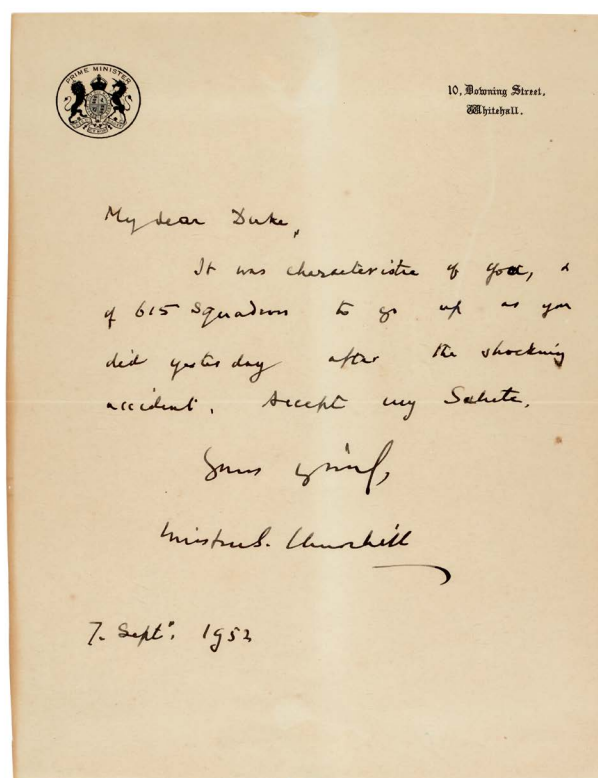 PRIME MINISTER
10, Downing Street,
Whitehall.
My dear Duke,
It was characteristic of you, &
of 615 Squadron to go up as you
did yesterday after the shocking
accident. Accept my Salute.
Yours
Winston S. Churchill
7. Sept. 1952